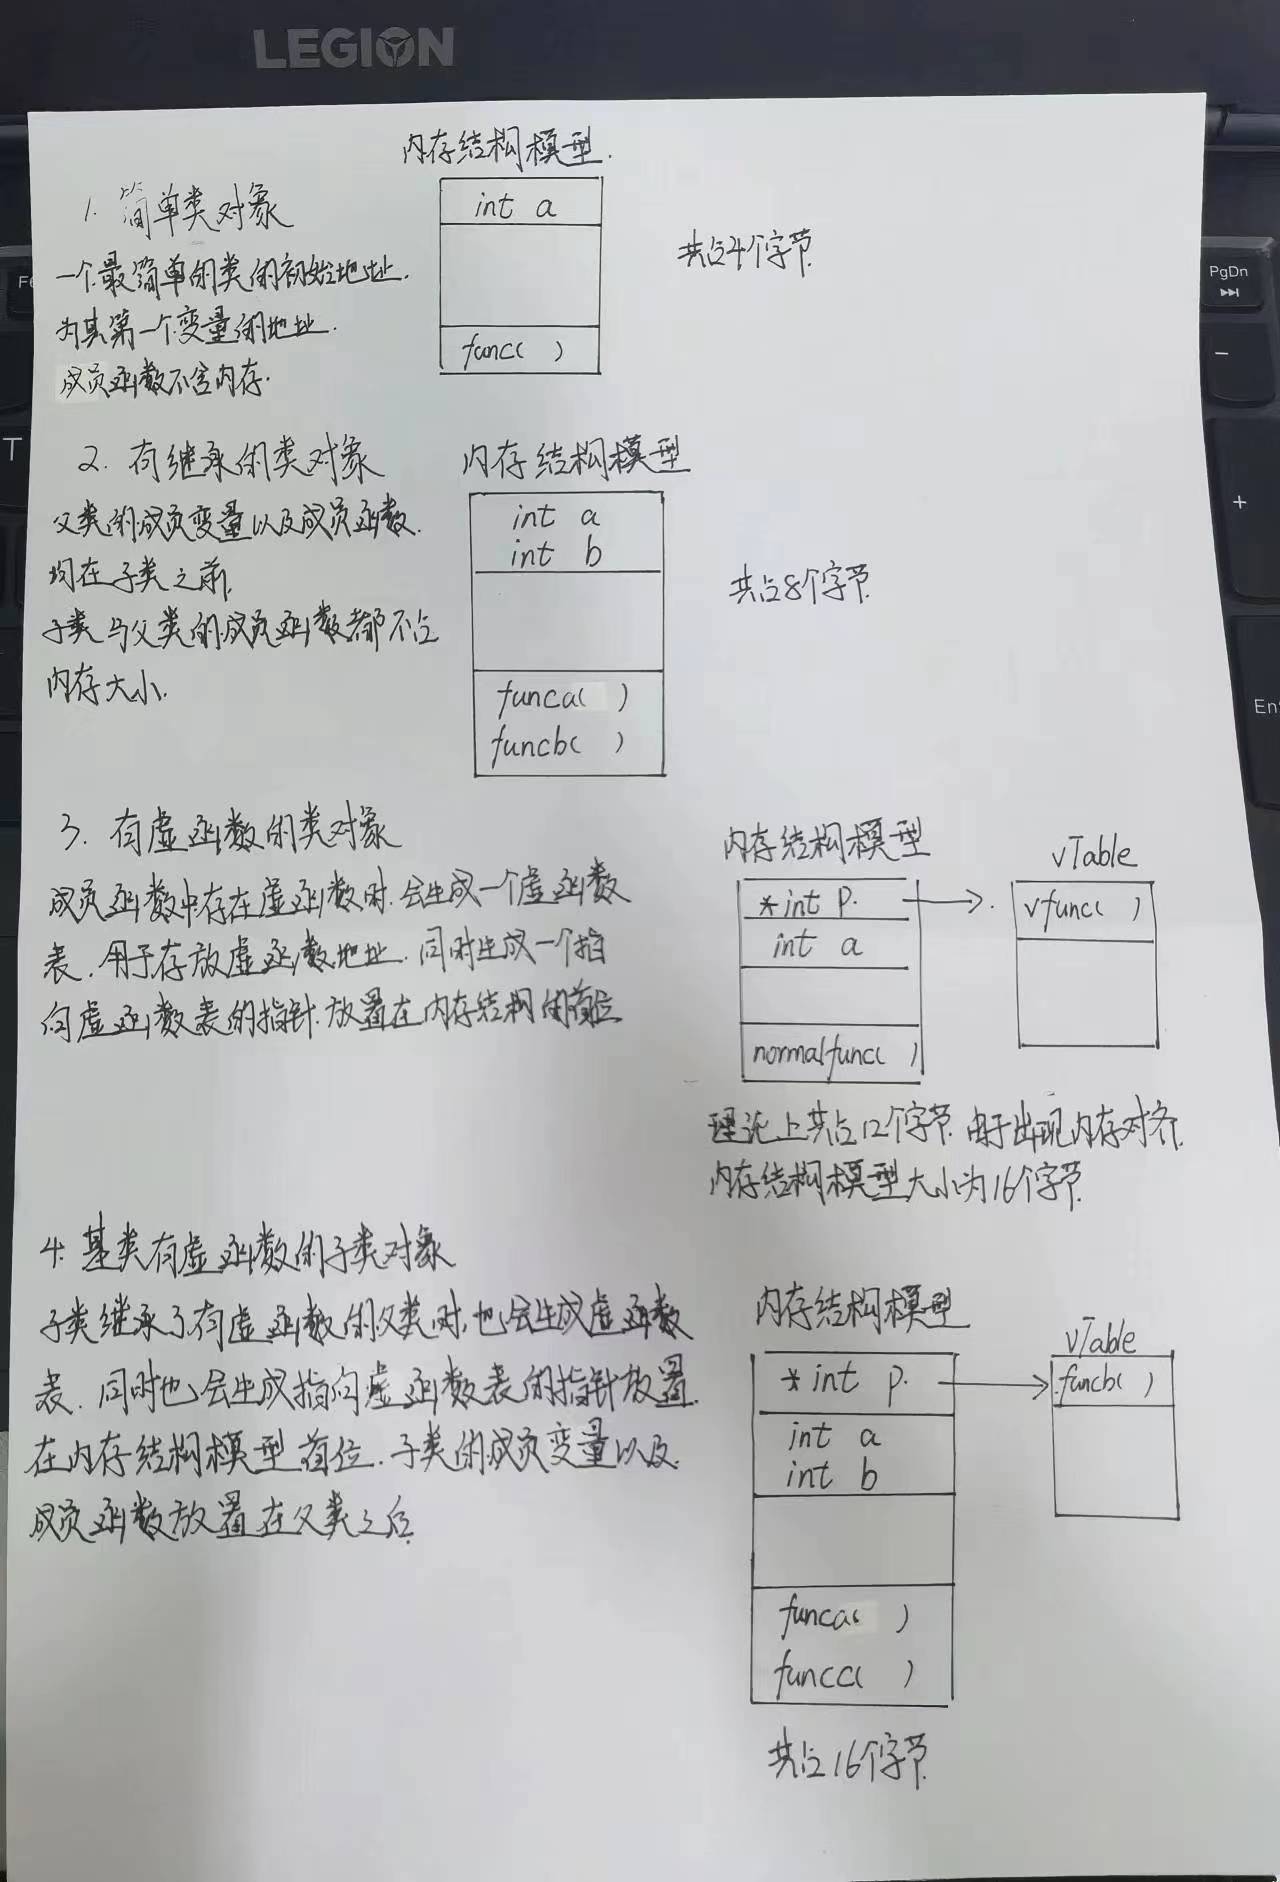 LEGION
内存结构模型.
int a
func( )
1. 简单类对象
一个最简单的类的初始地址.
为其第一个变量的地址.
成员函数不含内存.
共占4个字节
PgDn
2. 有继承的类对象
父类的成员变量以及成员函数.
均在子类之前.
子类与父类的成员函数都不占
内存大小.
内存结构模型
int a
int b
funca( )
funcb( )
共占8个字节
T
3. 有虚函数的类对象
成员函数中存在虚函数时.会生成一个虚函数
表.用于存放虚函数地址.同时生成一个指
向虚函数表的指针.放置在内存结构的首位
内存结构模型
*int p.
int a
normalfunc( )
vTable
vfunc( )
理论上共占12个字节.由于出现内存对齐.
内存结构模型大小为16个字节.
4. 基类有虚函数的子类对象
子类继承了有虚函数的父类时,也会生成虚函数
表.同时也会生成指向虚函数表的指针放置.
在内存结构模型首位.子类的成员变量以及.
成员函数放置在父类之后.
内存结构模型
*int p.
int a
int b
funca( )
funcc( )
vTable
funcb( )
共占16个字节.